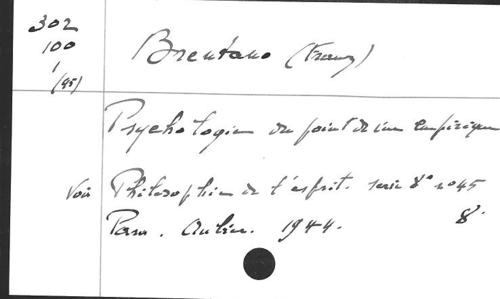 302
100
1
(45)
Brentano (Franz)
Psychologie du point de vue empirique
Voir Philosophie de l'esprit. serie 8° n° 45
Paris. Aubier. 1944. 8°